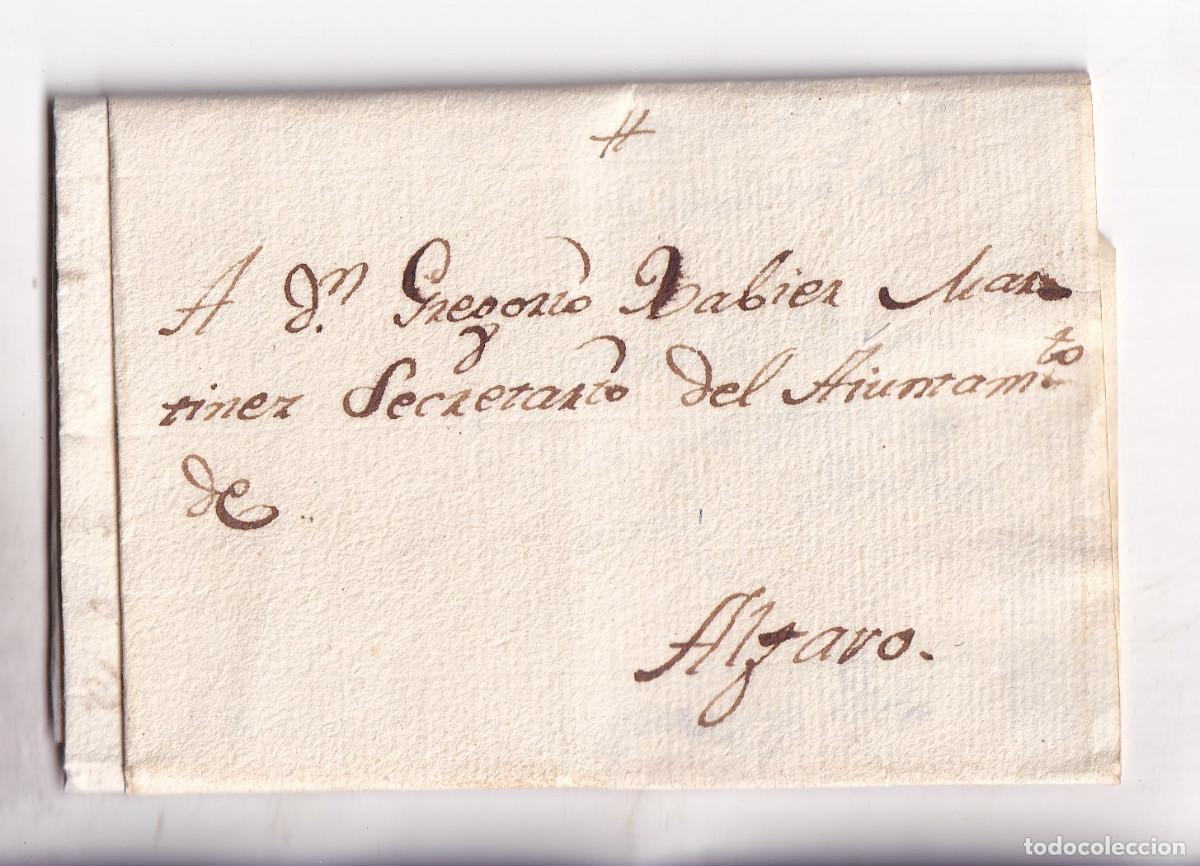 A D.n Gregorio Xabier Mar
tinez Secretario del Aiuntam.to
de
Alfaro.
todocoleccion